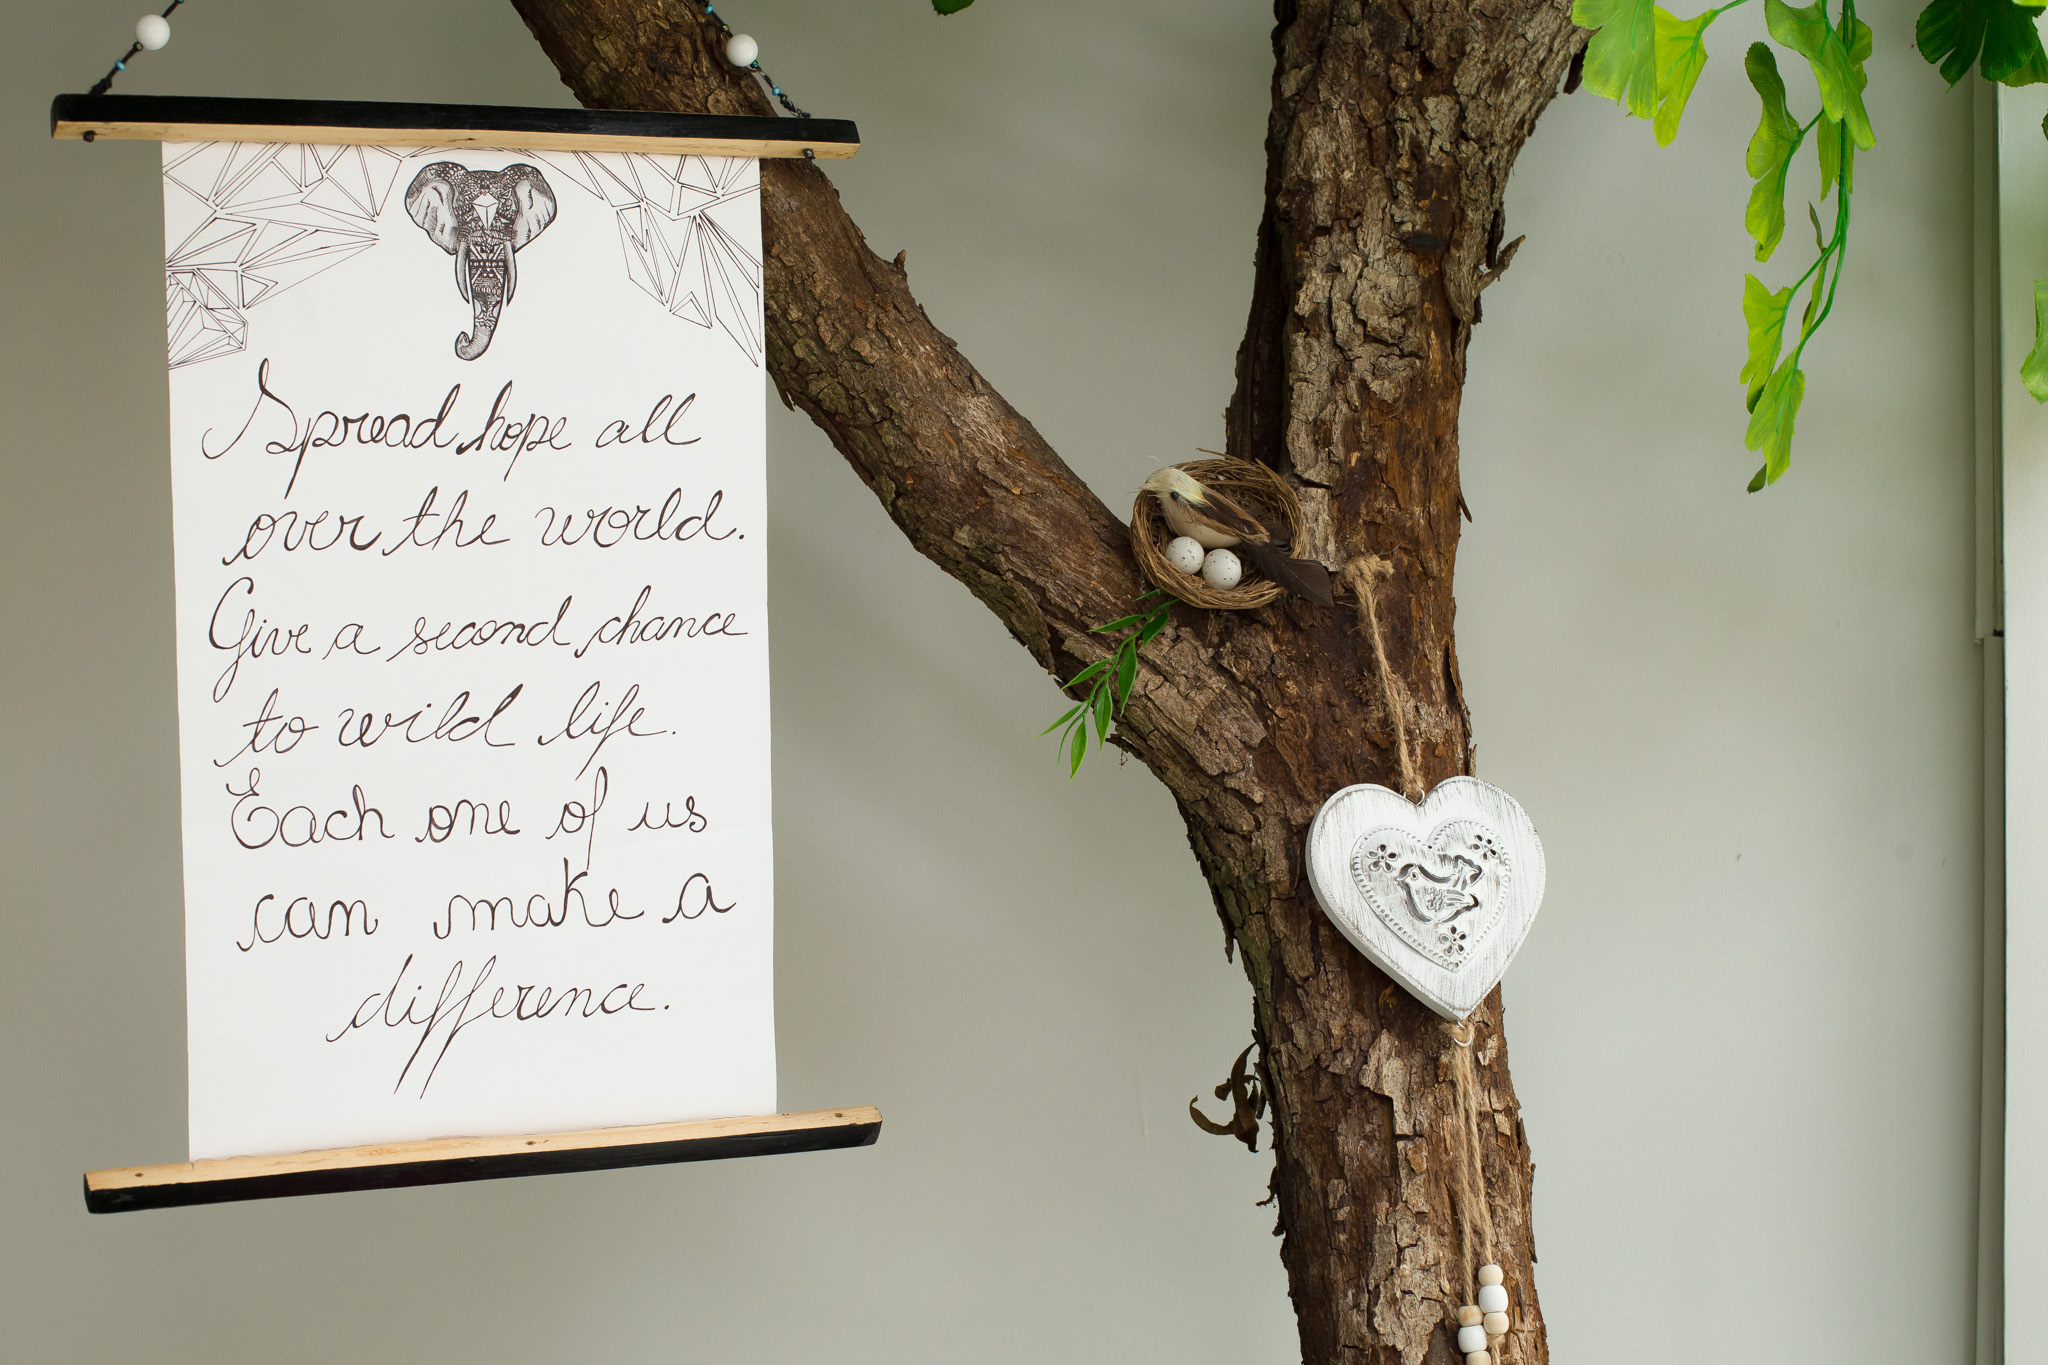 Spread hope all
over the world.
Give a second chance
to wild life.
Each one of us
can make a
difference.